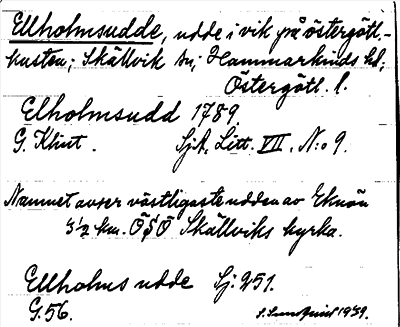 Ellholmsudde, udde i vik på östergötl.-
kusten; Skällvik sn; Hammarkinds hd;
Östergötl. l.
Elholmsudd 1789.
G. Klint. Sjk. Litt. VII. N:o 9.
Namnet avser västligaste udden av Eknön
3½ km. ÖSÖ Skällviks kyrka.
Ellholms udde Sj: 251.
G. 56. 1939.